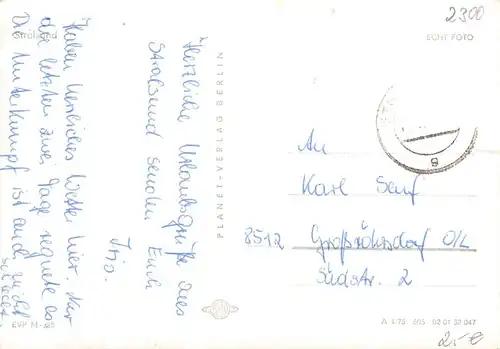 2300
Stralsund
ECHT FOTO
Herzliche Urlaubsgrüße aus
Stralsund senden Euch
Iris.
Haben herrliches Wetter hier. Nur
die letzten zwei Tage regnete es
Die Unterkunft ist auch nicht
schlecht.
PLANET-VERLAG BERLIN
An
Karl Senf
8512 Großröhrsdorf O/L
Südstr. 2
EVP M -,25
A 1/75 695 02 01 32 047
2,- €